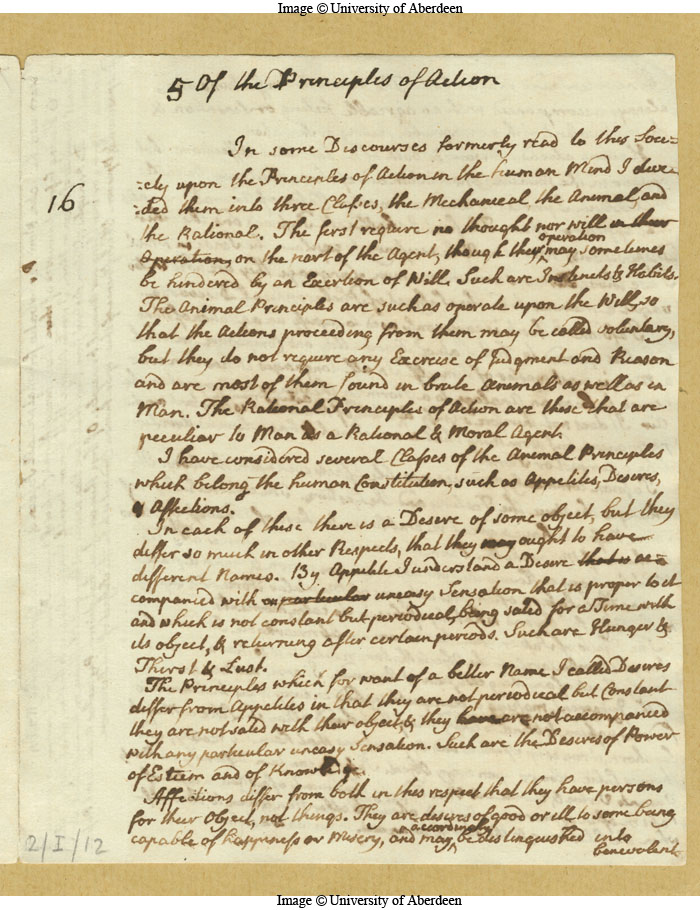 Image © University of Aberdeen
5 Of the Principles of Action
In some Discourses formerly read to this Soci=
=ety upon the Principles of Action in the human Mind I divi
=ded them into three Classes, the Mechanical the Animal, and
16
the Rational. The first require no thought nor will in their
operation
Operation, on the part of the Agent, though their may sometimes
be hindered by an Exertion of Will. Such are Instincts & Habits.
The Animal Principles are such as operate upon the Will, so
that the Actions proceeding from them may be called voluntary,
but they do not require any Exercise of Judgment and Reason
and are most of them found in brute Animals as well as in
Man. The Rational Principles of Action are these that are
peculiar to Man as a Rational & Moral Agent.
I have considered several Classes of the Animal Principles
which belong the human Constitution, such as Appetites, Desires,
& Affections.
In each of these there is a Desire of some object, but they
differ so much in other Respects, that they may ought to have
different Names. By Appetite I understand a Desire that is ac=
companied with an particular uneasy Sensation that is proper to it
and which is not constant but periodical, being sated for a Time with
its object, & returning after certain periods. Such are Hunger &
Thirst & Lust.
The Principles which for want of a better Name I called Desires
differ from Appetites in that they are not periodical but Constant
they are not sated with their object, & they have are not accompanied
with any particular uneasy Sensation. Such are the Desires of Power
of Esteem and of Knowledge.
Affections differ from both in this respect that they have persons
for their Object, not things. They are desires of good or ill to some being
accordingly
capable of happiness or Misery, and may be distinguished into
benevolent
2/I/12
Image © University of Aberdeen